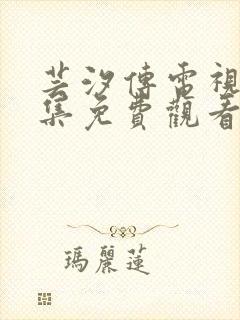 芸汐傳電視
集免費觀看
瑪麗蓮